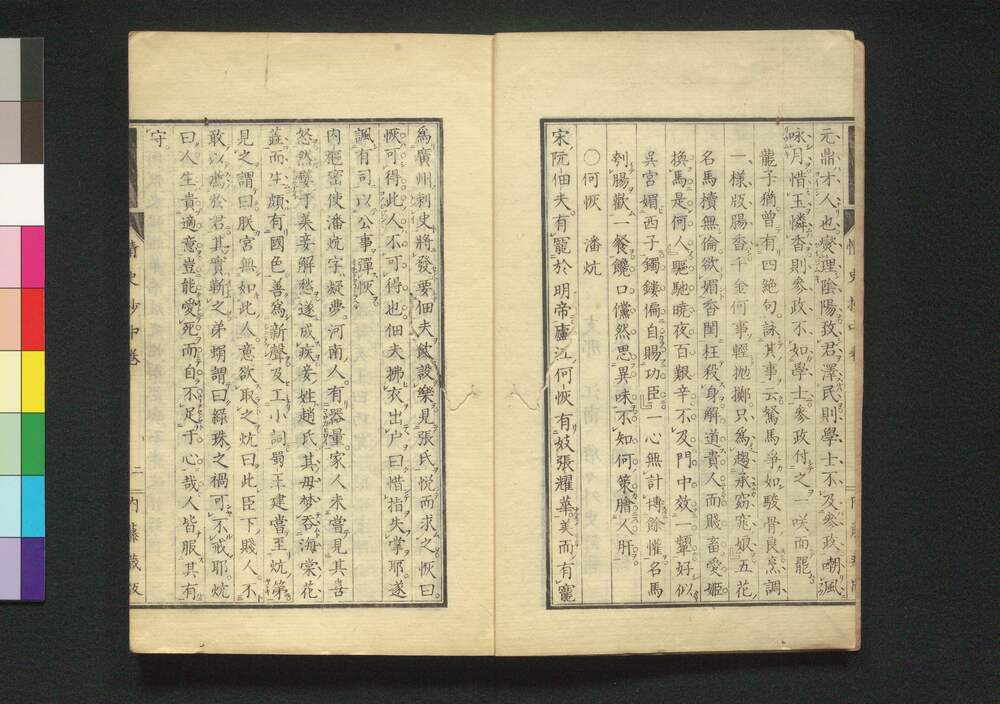 元鼎才人也燮理陰陽孜君澤民則學士不及參政嘲風
咏月惜玉憐香則參政不如學士參政付之一咲而罷
龍子猶曾有四絶句詠其事云駑馬爭如駿骨良烹調
一樣版腸香千金何事輕抛擲只爲趨承窈窕娘五花
名馬擅無倫欲媚香閨枉殺身解道貴人而賤畜愛姬
換馬是何人驅馳曉夜百艱辛不及門中效一顰好似
吳宮媚西子鐲鏤偏自賜功臣一心無計博餘懽名馬
刳腸歡一餐饞口儻然思異味不知何策膾人肝
〇何恢 潘炕
宋阮佃夫有寵於明帝廬江何恢有妓張耀華美而有寵
爲廣州刺史將發要佃夫飲設樂見張氏悦而求之恢曰
恢可得此人不可得也佃夫拂衣出戸曰惜指失掌耶遂
諷有司以公事彈恢
内樞密使潘炕字凝夢河南人有器量家人未嘗見其喜
怒然嬖于美妾解愁遂成疾妾姓趙氏其母夢吞海棠花
蕋而生頗有國色善爲新聲及工小詞蜀王建嘗至炕第
見之謂曰朕宮無如此人意欲取之炕曰此臣下賤人不
敢以薦於君其實靳之弟峭謂曰緑珠之禍可不戒耶炕
曰人生貴適意豈能愛死而自不足于心哉人皆服其有
守
情史抄中卷
二
内藤藏版